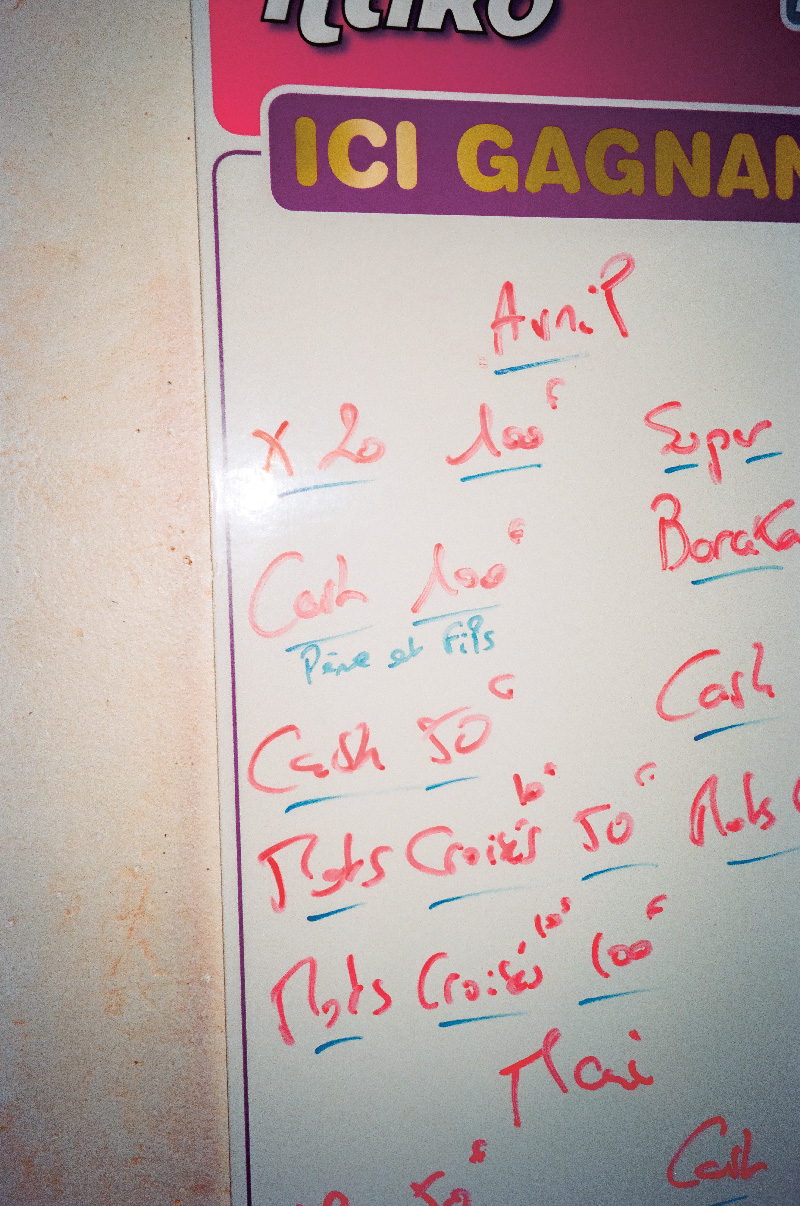 ICI GAGNAN
Avril
X 20 100€ Super
Baraka
Cash 100€
Père et Fils
Cash
Cash 50€
Mots Croisés 10€ 50€ Mots
Mots Croisés 10€ 100€
Mai
50€ Cash